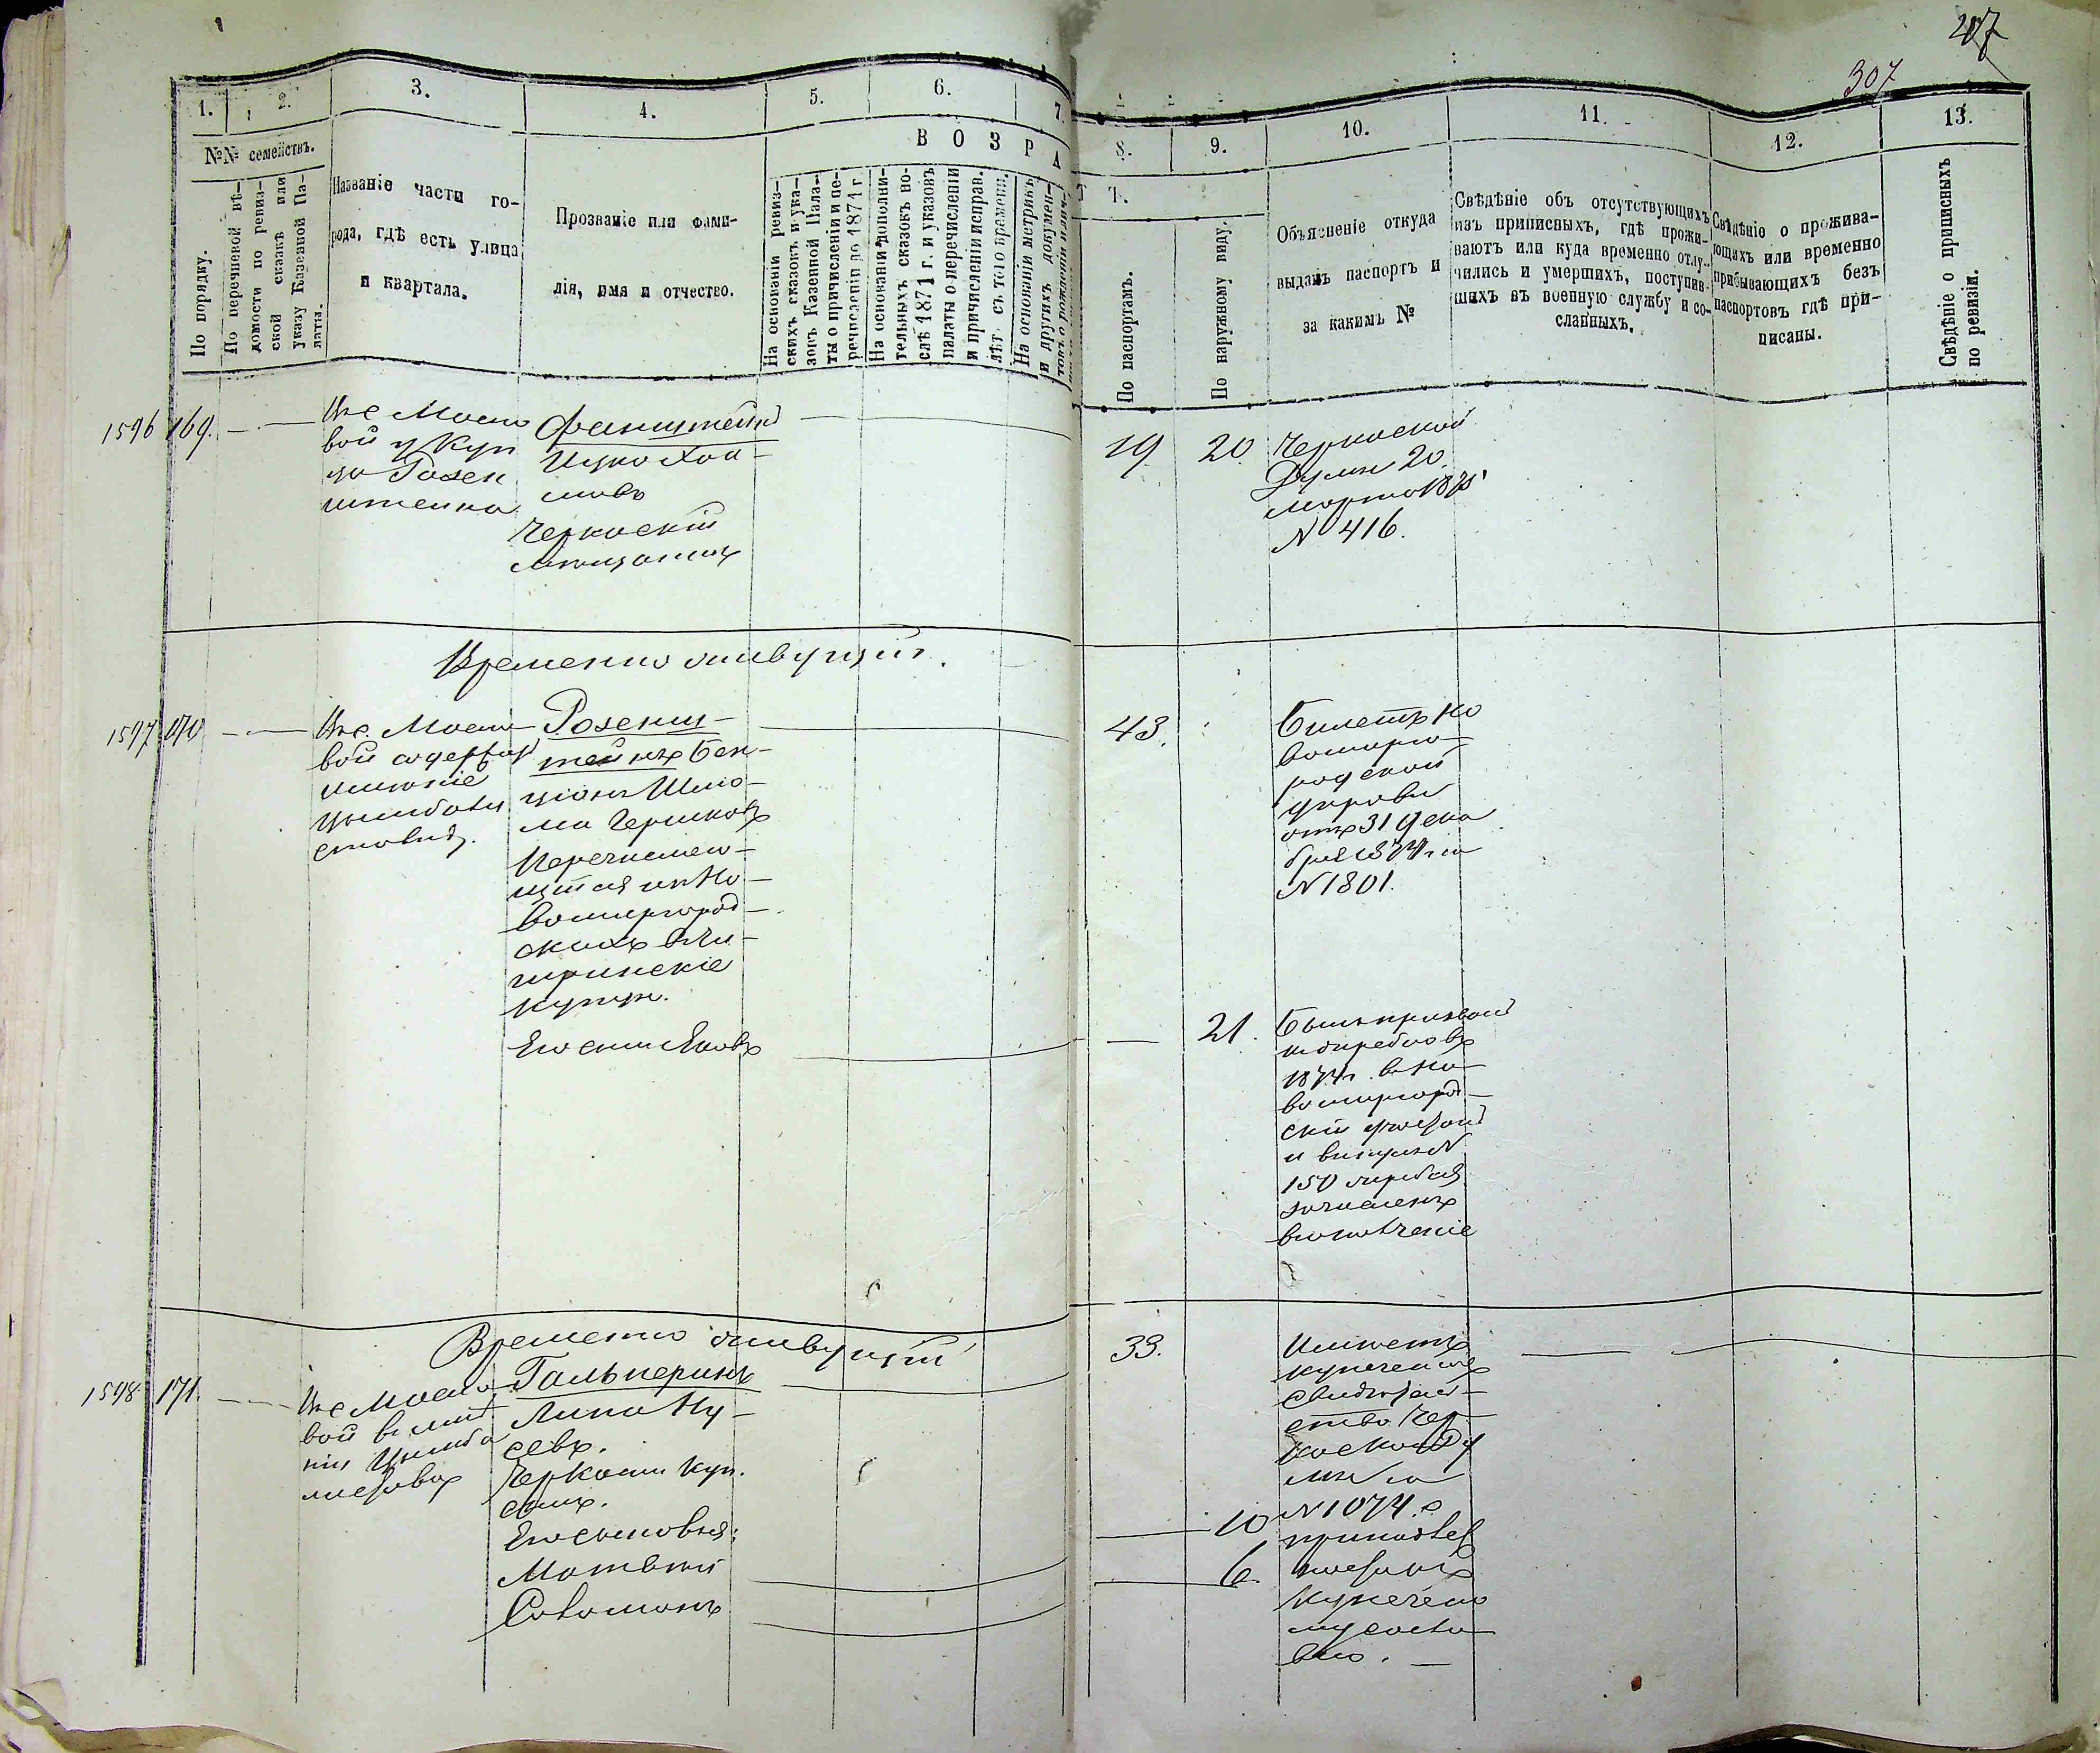 207
307
1.
2.
3.
4.
5.
6.
7.
8.
9.
10.
11.
12.
13.
№№ семействъ.
По порядку.
По перечневой вѣ-
домости по ревиз-
ской сказкѣ или
указу Казенной Па-
латы.
Названіе части го-
рода, гдѣ есть улица
и квартала.
Прозваніе или фами-
лія, имя и отчество.
В О З Р А
Т Ъ.
На основаніи ревиз-
скихъ сказокъ и ука-
зовъ Казенной Пала-
ты о причисленіи и пе-
речисленіи до 1871 г.
На основаніи дополни-
тельныхъ сказокъ по-
слѣ 1871 г. и указовъ
палаты о перечисленіи
и причисленіи исправ.
лѣт. съ того времени.
На основаніи метрикъ
и другихъ докумен-
По паспортамъ.
По наружному виду.
Объясненіе откуда
выданъ паспортъ и
за какимъ №
Свѣдѣніе объ отсутствующихъ
изъ приписныхъ, гдѣ прожи-
ваютъ или куда временно отлу-
чились и умершихъ, поступив-
шихъ въ военную службу и со-
сланныхъ.
Свѣдѣніе о прожива-
ющахъ или временно
прибывающихъ безъ
паспортовъ гдѣ при-
писаны.
Свѣдѣніе о приписныхъ
по ревизіи.
1596 169.
вой у Куп
ца Розен
штейна
Файнштейнъ
Ицко Хаи-
мовъ
Черкаскій
мѣщанинъ
19 20
Черкаской
Думы 20
марта 1875
№ 416.
Временно живущій.
1597 170
вой содержат
имѣніе
Розенш-
тейнъ Бен-
ціонъ Шлио-
ма Гершковъ
Перечисляю-
щійся изъ Но-
вомиргород-
скихъ въ Чи-
гиринскіе
купцы.
Его сынъ Яковъ
43.
Билетъ Но
вомирго-
родской
управы
отъ 31 дека
бря 1874 за
№ 1801.
21.
Былъ призванъ
къ жребію въ
1874 г. въ Но-
вомиргород-
скій
и вынулъ №
150 жребія
зачисленъ
въ ополченіе
Временно живущій
1598 171.
вой въ имѣ
ніи
Гальперинъ
Липа Ну-
севъ.
Черкаскій Куп.
сынъ.
Его сыновья:
Матвѣй
Соломонъ
33.
10
6
Имѣетъ
купеческое
свидѣтель-
ство Чер-
каской Ду
мы за
№ 1074 о
принадлеж
ности къ
купечес
му сосло
вію.